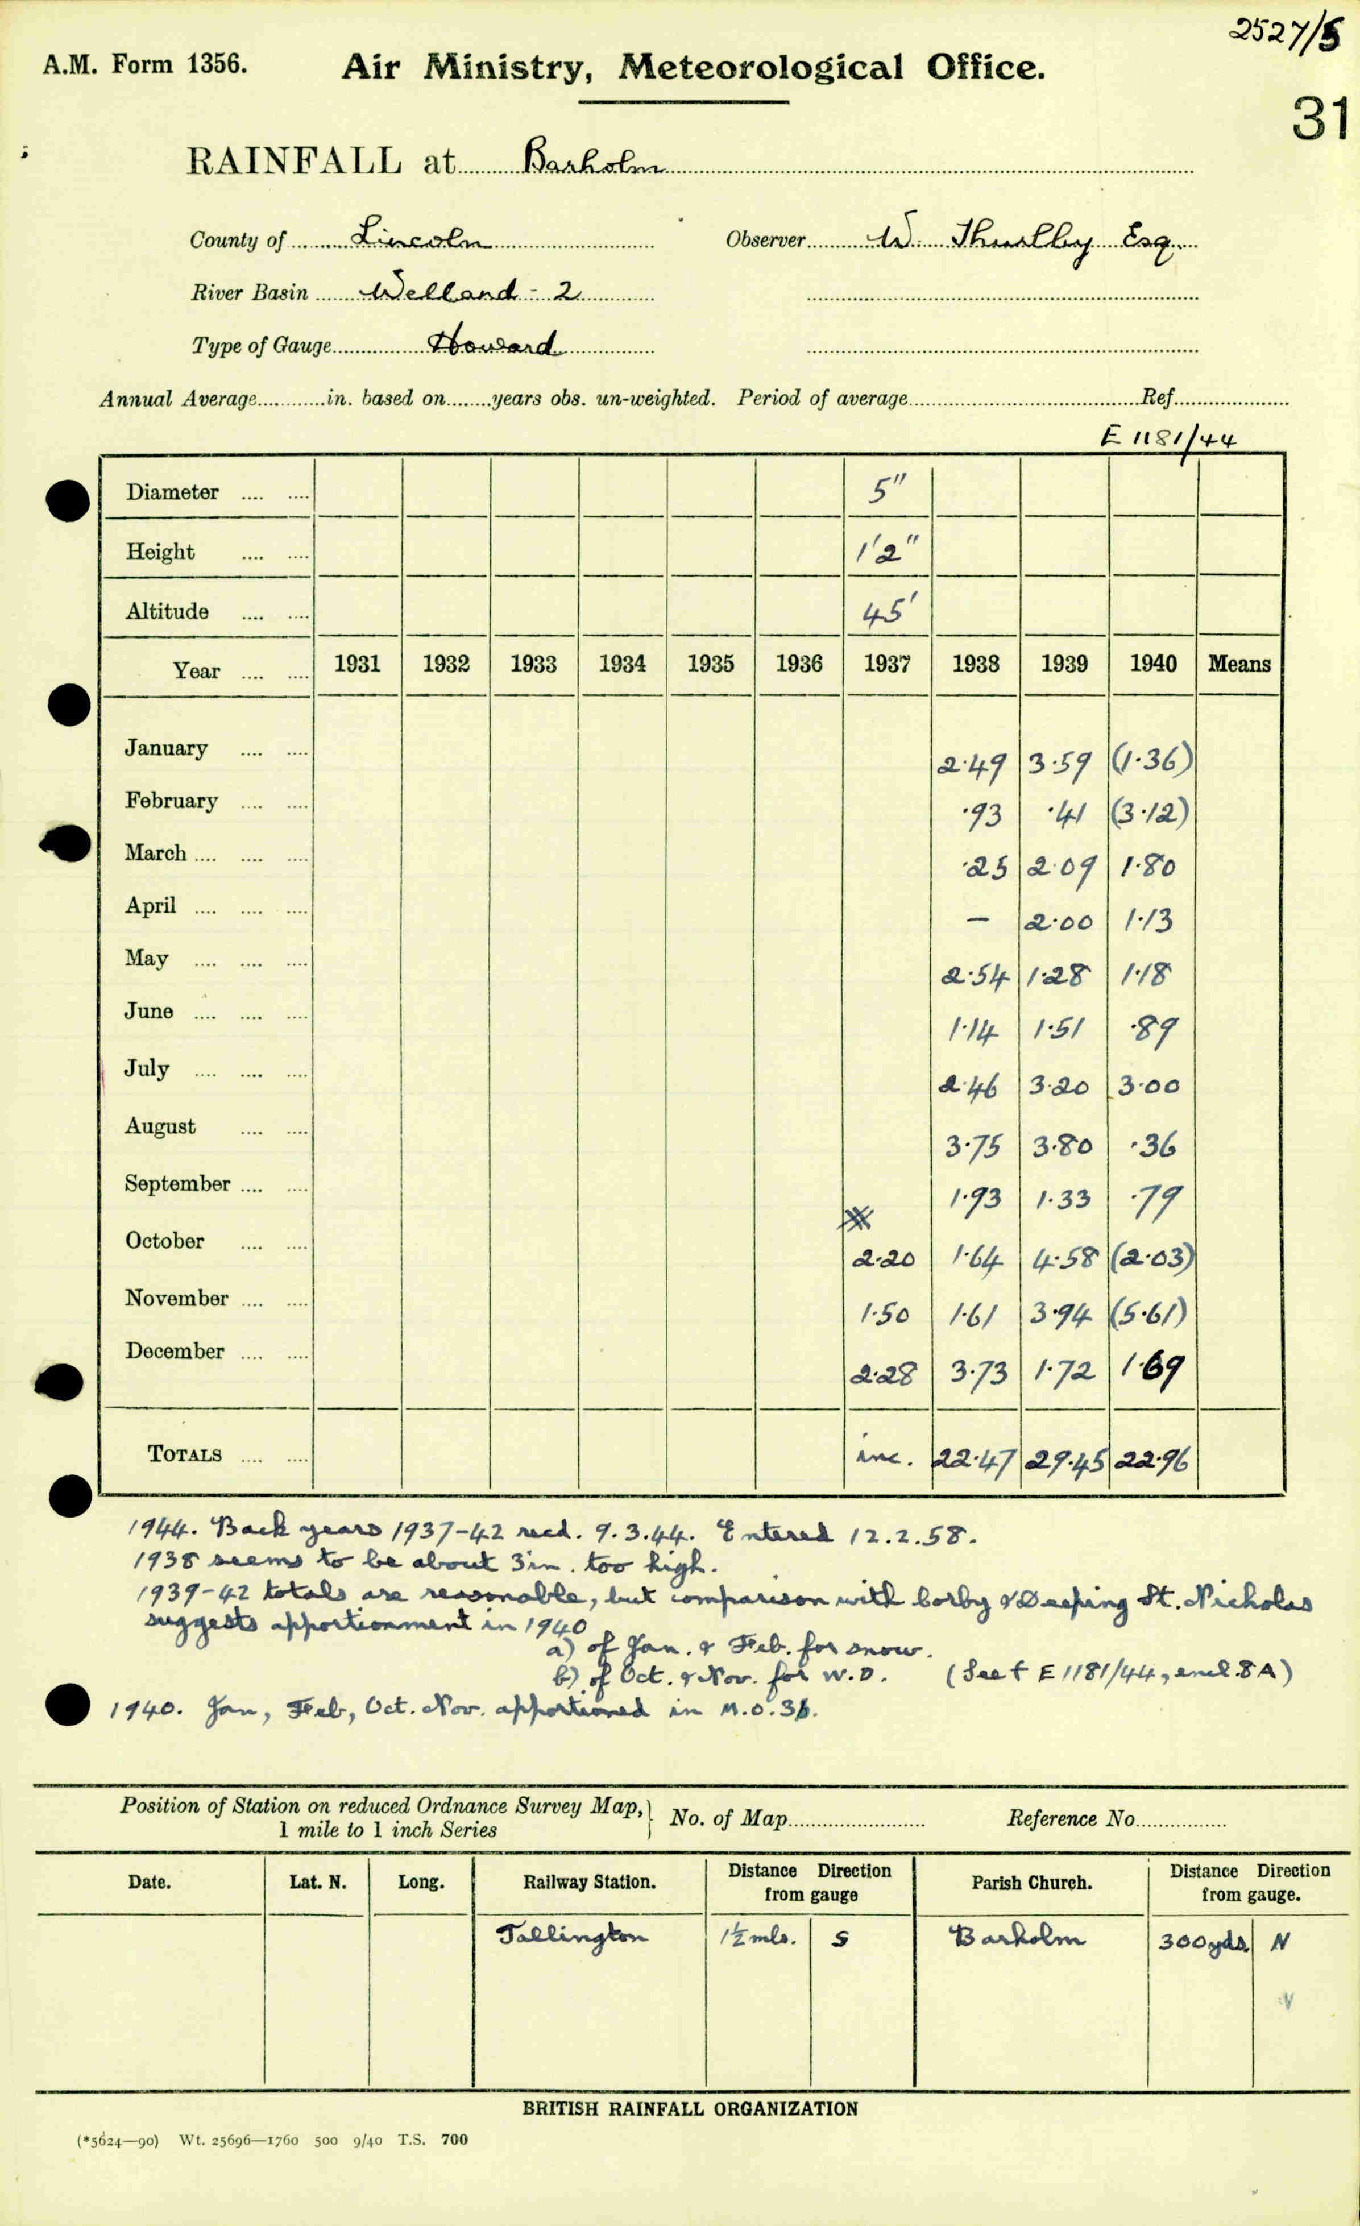 2527/5
A.M. Form 1356. Air Ministry, Meteorological Office.
31
RAINFALL at Barholm
County of Lincoln Observer W. Thurlby Esq.
River Basin Welland - 2
Type of Gauge Howard
Annual Average in. based on years obs. un-weighted. Period of average Ref.
E 1181/44
Diameter 5"
Height 1'2"
Altitude 45'
Year 1931 1932 1933 1934 1935 1936 1937 1938 1939 1940 Means
January 2.49 3.59 (1.36)
February .93 .41 (3.12)
March .25 2.09 1.80
April — 2.00 1.13
May 2.54 1.28 1.18
June 1.14 1.51 .89
July 2.46 3.20 3.00
August 3.75 3.80 .36
September 1.93 1.33 .79
October 2.20 1.64 4.58 (2.03)
November 1.50 1.61 3.94 (5.61)
December 2.28 3.73 1.72 1.69
TOTALS inc. 22.47 29.45 22.96
1944. Back years 1937-42 recd. 9.3.44. Entered 12.2.58.
1938 seems to be about 3in. too high.
1939-42 totals are reasonable, but comparison with Corby & Deeping St. Nicholas
suggests apportionment in 1940
a) of Jan. & Feb. for snow.
b) of Oct. & Nov. for W.D. (See f E 1181/44, encl. 8A)
1940. Jan, Feb, Oct. Nov. apportioned in M.O.3b.
Position of Station on reduced Ordnance Survey Map, No. of Map Reference No.
1 mile to 1 inch Series
Date. Lat. N. Long. Railway Station. Distance Direction from gauge Parish Church. Distance Direction from gauge.
Tallington 1½ mls. S Barholm 300 yds. N
BRITISH RAINFALL ORGANIZATION
(*5624—90) Wt. 25696—1760 500 9/40 T.S. 700